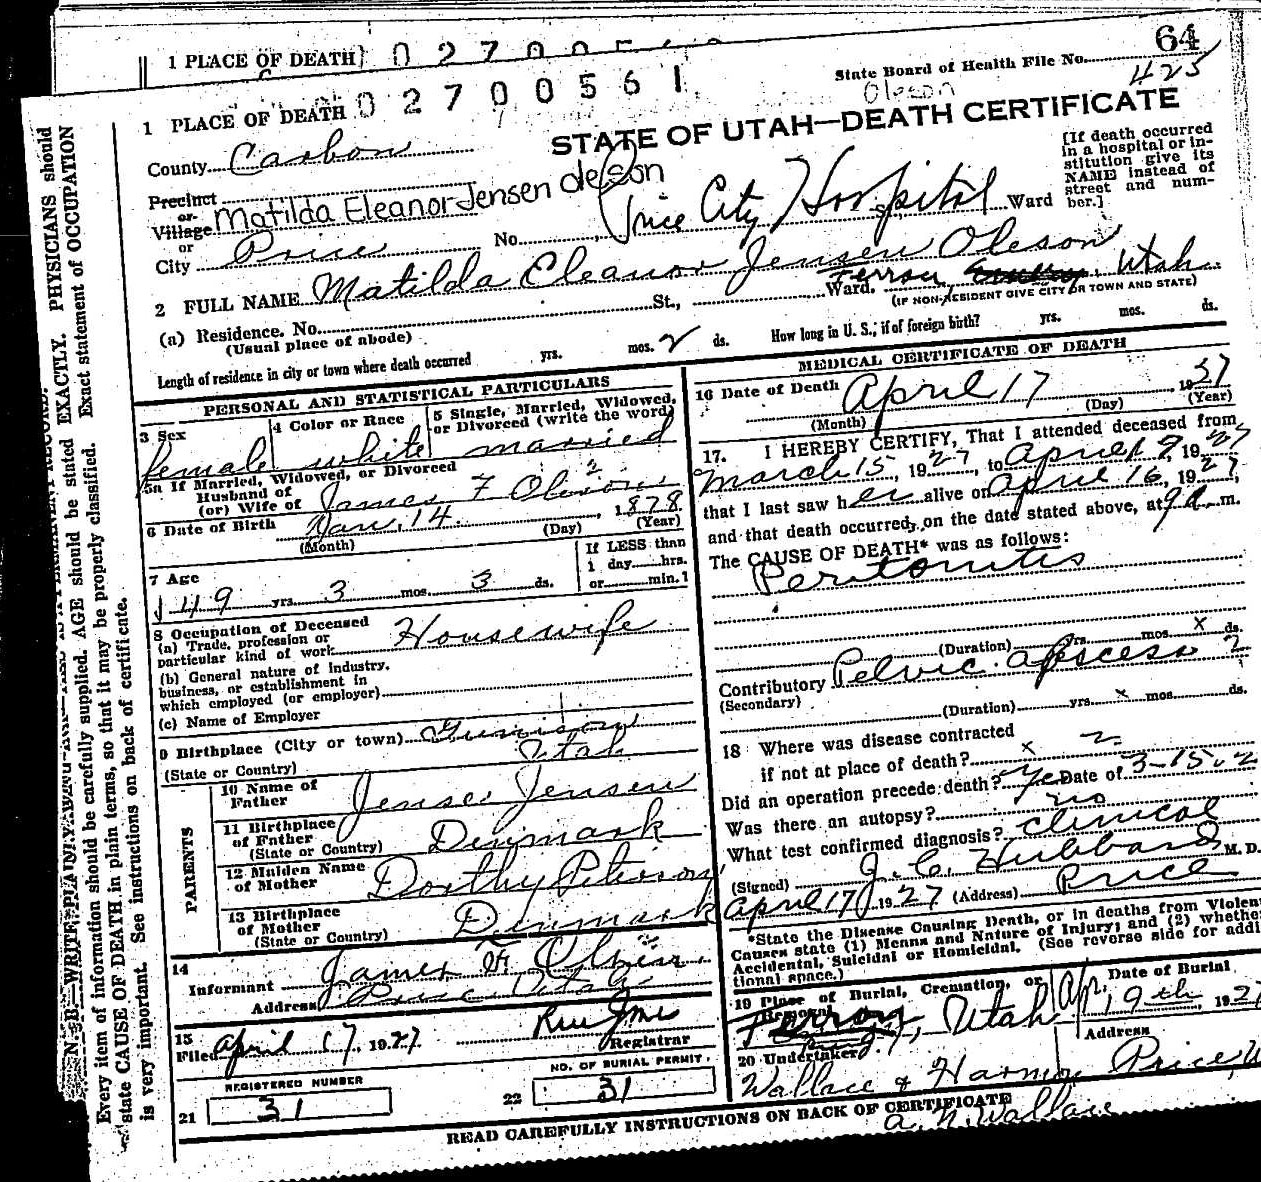 1 PLACE OF DEATH
64
State Board of Health File No.
425
Oleson
0 2 7 0 0 5 6 1
1 PLACE OF DEATH
STATE OF UTAH—DEATH CERTIFICATE
County Carbon
[If death occurred in a hospital or institution give its NAME instead of street and number.]
Precinct
or
Village Matilda Eleanor Jensen Oleson
or
City Price No. Price City Hospital Ward
2 FULL NAME Matilda Eleanor Jensen Oleson
(a) Residence. No. St., Ward. Ferron, Utah
(Usual place of abode) (IF NON-RESIDENT GIVE CITY OR TOWN AND STATE)
Length of residence in city or town where death occurred yrs. mos. 2 ds. How long in U. S., if of foreign birth? yrs. mos. ds.
PERSONAL AND STATISTICAL PARTICULARS
3 Sex
female
4 Color or Race
white
5 Single, Married, Widowed, or Divorced (write the word)
married
5a If Married, Widowed, or Divorced
Husband of
(or) Wife of James F Oleson
6 Date of Birth Jan. 14. 1878
(Month) (Day) (Year)
7 Age
49 yrs. 3 mos. 3 ds.
If LESS than
1 day hrs.
or min.
8 Occupation of Deceased
(a) Trade, profession or particular kind of work Housewife
(b) General nature of industry, business, or establishment in which employed (or employer)
(c) Name of Employer
9 Birthplace (City or town) Gunnison
(State or Country) Utah
PARENTS
10 Name of Father Jense Jensen
11 Birthplace of Father (State or Country) Denmark
12 Maiden Name of Mother Dorthy Peterson
13 Birthplace of Mother (State or Country) Denmark
14
Informant James F
Address Price Utah
15
Filed April 17, 1927
Registrar
REGISTERED NUMBER
21 31
NO. OF BURIAL PERMIT.
22 31
MEDICAL CERTIFICATE OF DEATH
16 Date of Death April 17, 1927
(Month) (Day) (Year)
17. I HEREBY CERTIFY, That I attended deceased from
March 15, 1927, to April 19, 1927
that I last saw her alive on April 16, 1927,
and that death occurred, on the date stated above, at 9 a. m.
The CAUSE OF DEATH* was as follows:
Peritonitis
(Duration) yrs. mos. x ds.
Contributory Pelvic abscess 2
(Secondary)
(Duration) yrs. x mos. ds.
18 Where was disease contracted
if not at place of death? x
Did an operation precede death? yes Date of 3-15-2
Was there an autopsy? no
What test confirmed diagnosis? clinical
(Signed) J. C. Hubbard M. D.
April 17, 1927 (Address) Price
*State the Disease Causing Death, or in deaths from Violent
Causes state (1) Means and Nature of Injury; and (2) whether
Accidental, Suicidal or Homicidal. (See reverse side for addi-
tional space.)
19 Place of Burial, Cremation, or Removal
Ferron, Utah
Date of Burial
Apr. 19th, 192
20 Undertaker
Wallace & Harmon
Address
Price, U
A. N. Wallace
READ CAREFULLY INSTRUCTIONS ON BACK OF CERTIFICATE
N. B.—WRITE PLAINLY
Every item of information should be carefully supplied. AGE should be stated EXACTLY. PHYSICIANS should
state CAUSE OF DEATH in plain terms, so that it may be properly classified. Exact statement of OCCUPATION
is very important. See instructions on back of certificate.